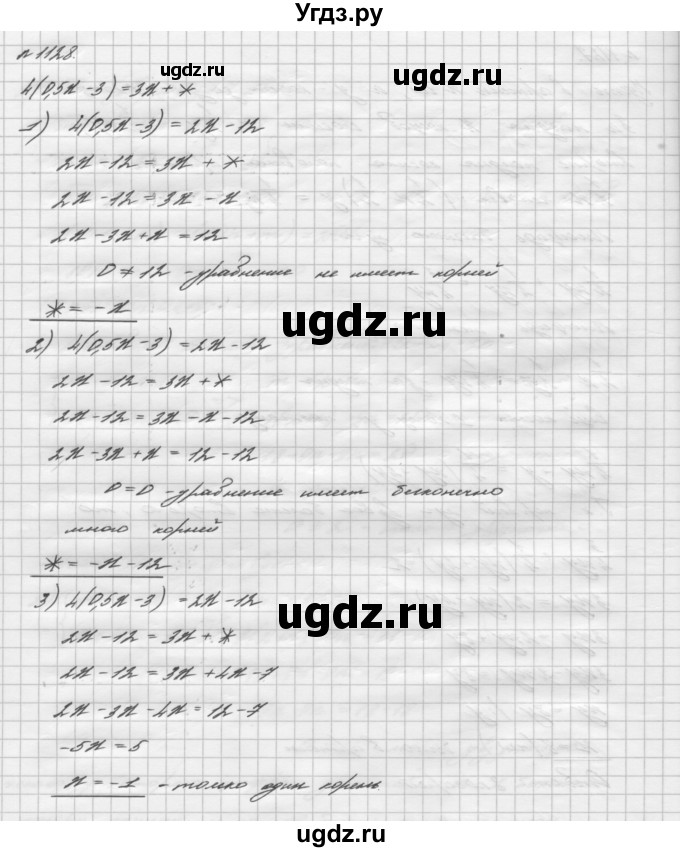 Угдз.ру
n 1128.
ugdz.ru
ugdz.ru
4(0,5x - 3) = 3x + *
1) 4(0,5x - 3) = 2x - 12
2x - 12 = 3x + *
2x - 12 = 3x - x
2x - 3x + x = 12
0 ≠ 12 - уравнение не имеет корней
* = - x
ugdz.ru
2) 4(0,5x - 3) = 2x - 12
2x - 12 = 3x + *
2x - 12 = 3x - x - 12
2x - 3x + x = 12 - 12
0 = 0 - уравнение имеет бесконечно
много корней
* = - x - 12
3) 4(0,5x - 3) = 2x - 12
ugdz.ru
2x - 12 = 3x + *
2x - 12 = 3x + 4x - 7
2x - 3x - 4x = 12 - 7
-5x = 5
x = -1 - только один корень.
ugdz.ru